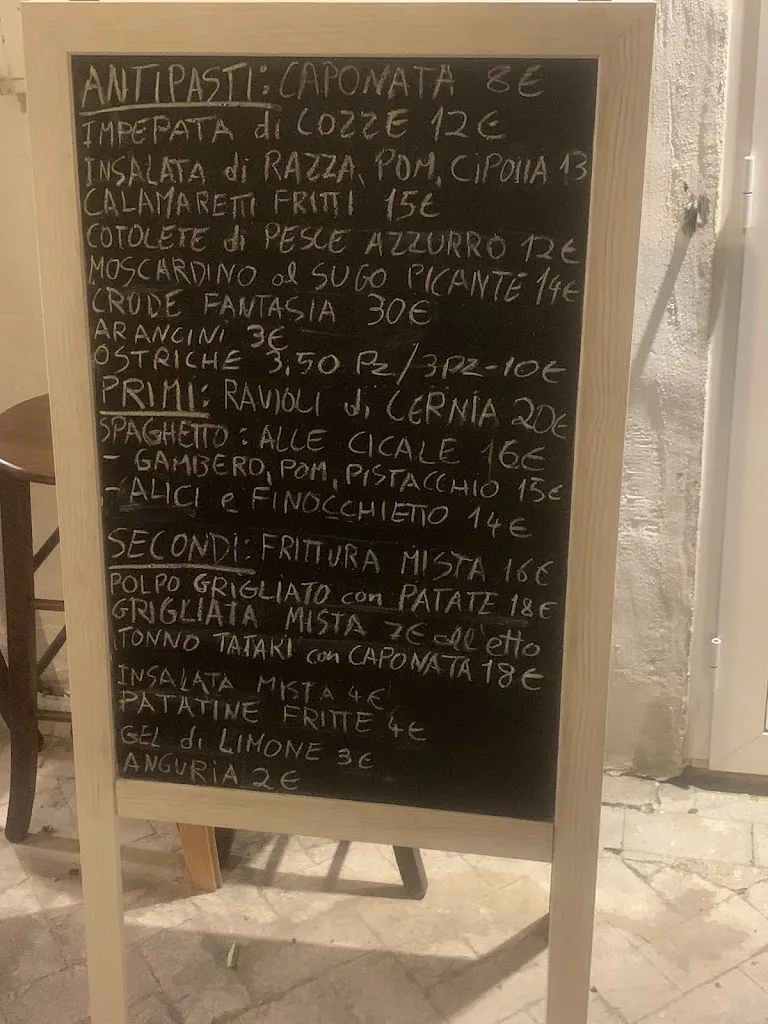 ANTIPASTI: CAPONATA 8€
IMPEPATA di COZZE 12€
INSALATA di RAZZA, POM, CIPOLLA 13
CALAMARETTI FRITTI 15€
COTOLETE di PESCE AZZURRO 12€
MOSCARDINO al SUGO PICANTE 14€
CRUDE FANTASIA 30€
ARANCINI 3€
OSTRICHE 3,50 Pz/3pz-10€
PRIMI: RAVIOLI di CERNIA 20€
SPAGHETTO: ALLE CICALE 16€
- GAMBERO, POM, PISTACCHIO 15€
- ALICI e FINOCCHIETTO 14€
SECONDI: FRITTURA MISTA 16€
POLPO GRIGLIATO con PATATE 18€
GRIGLIATA MISTA 7€ all'etto
TONNO TATAKI con CAPONATA 18€
INSALATA MISTA 4€
PATATINE FRITTE 4€
GEL di LIMONE 3€
ANGURIA 2€